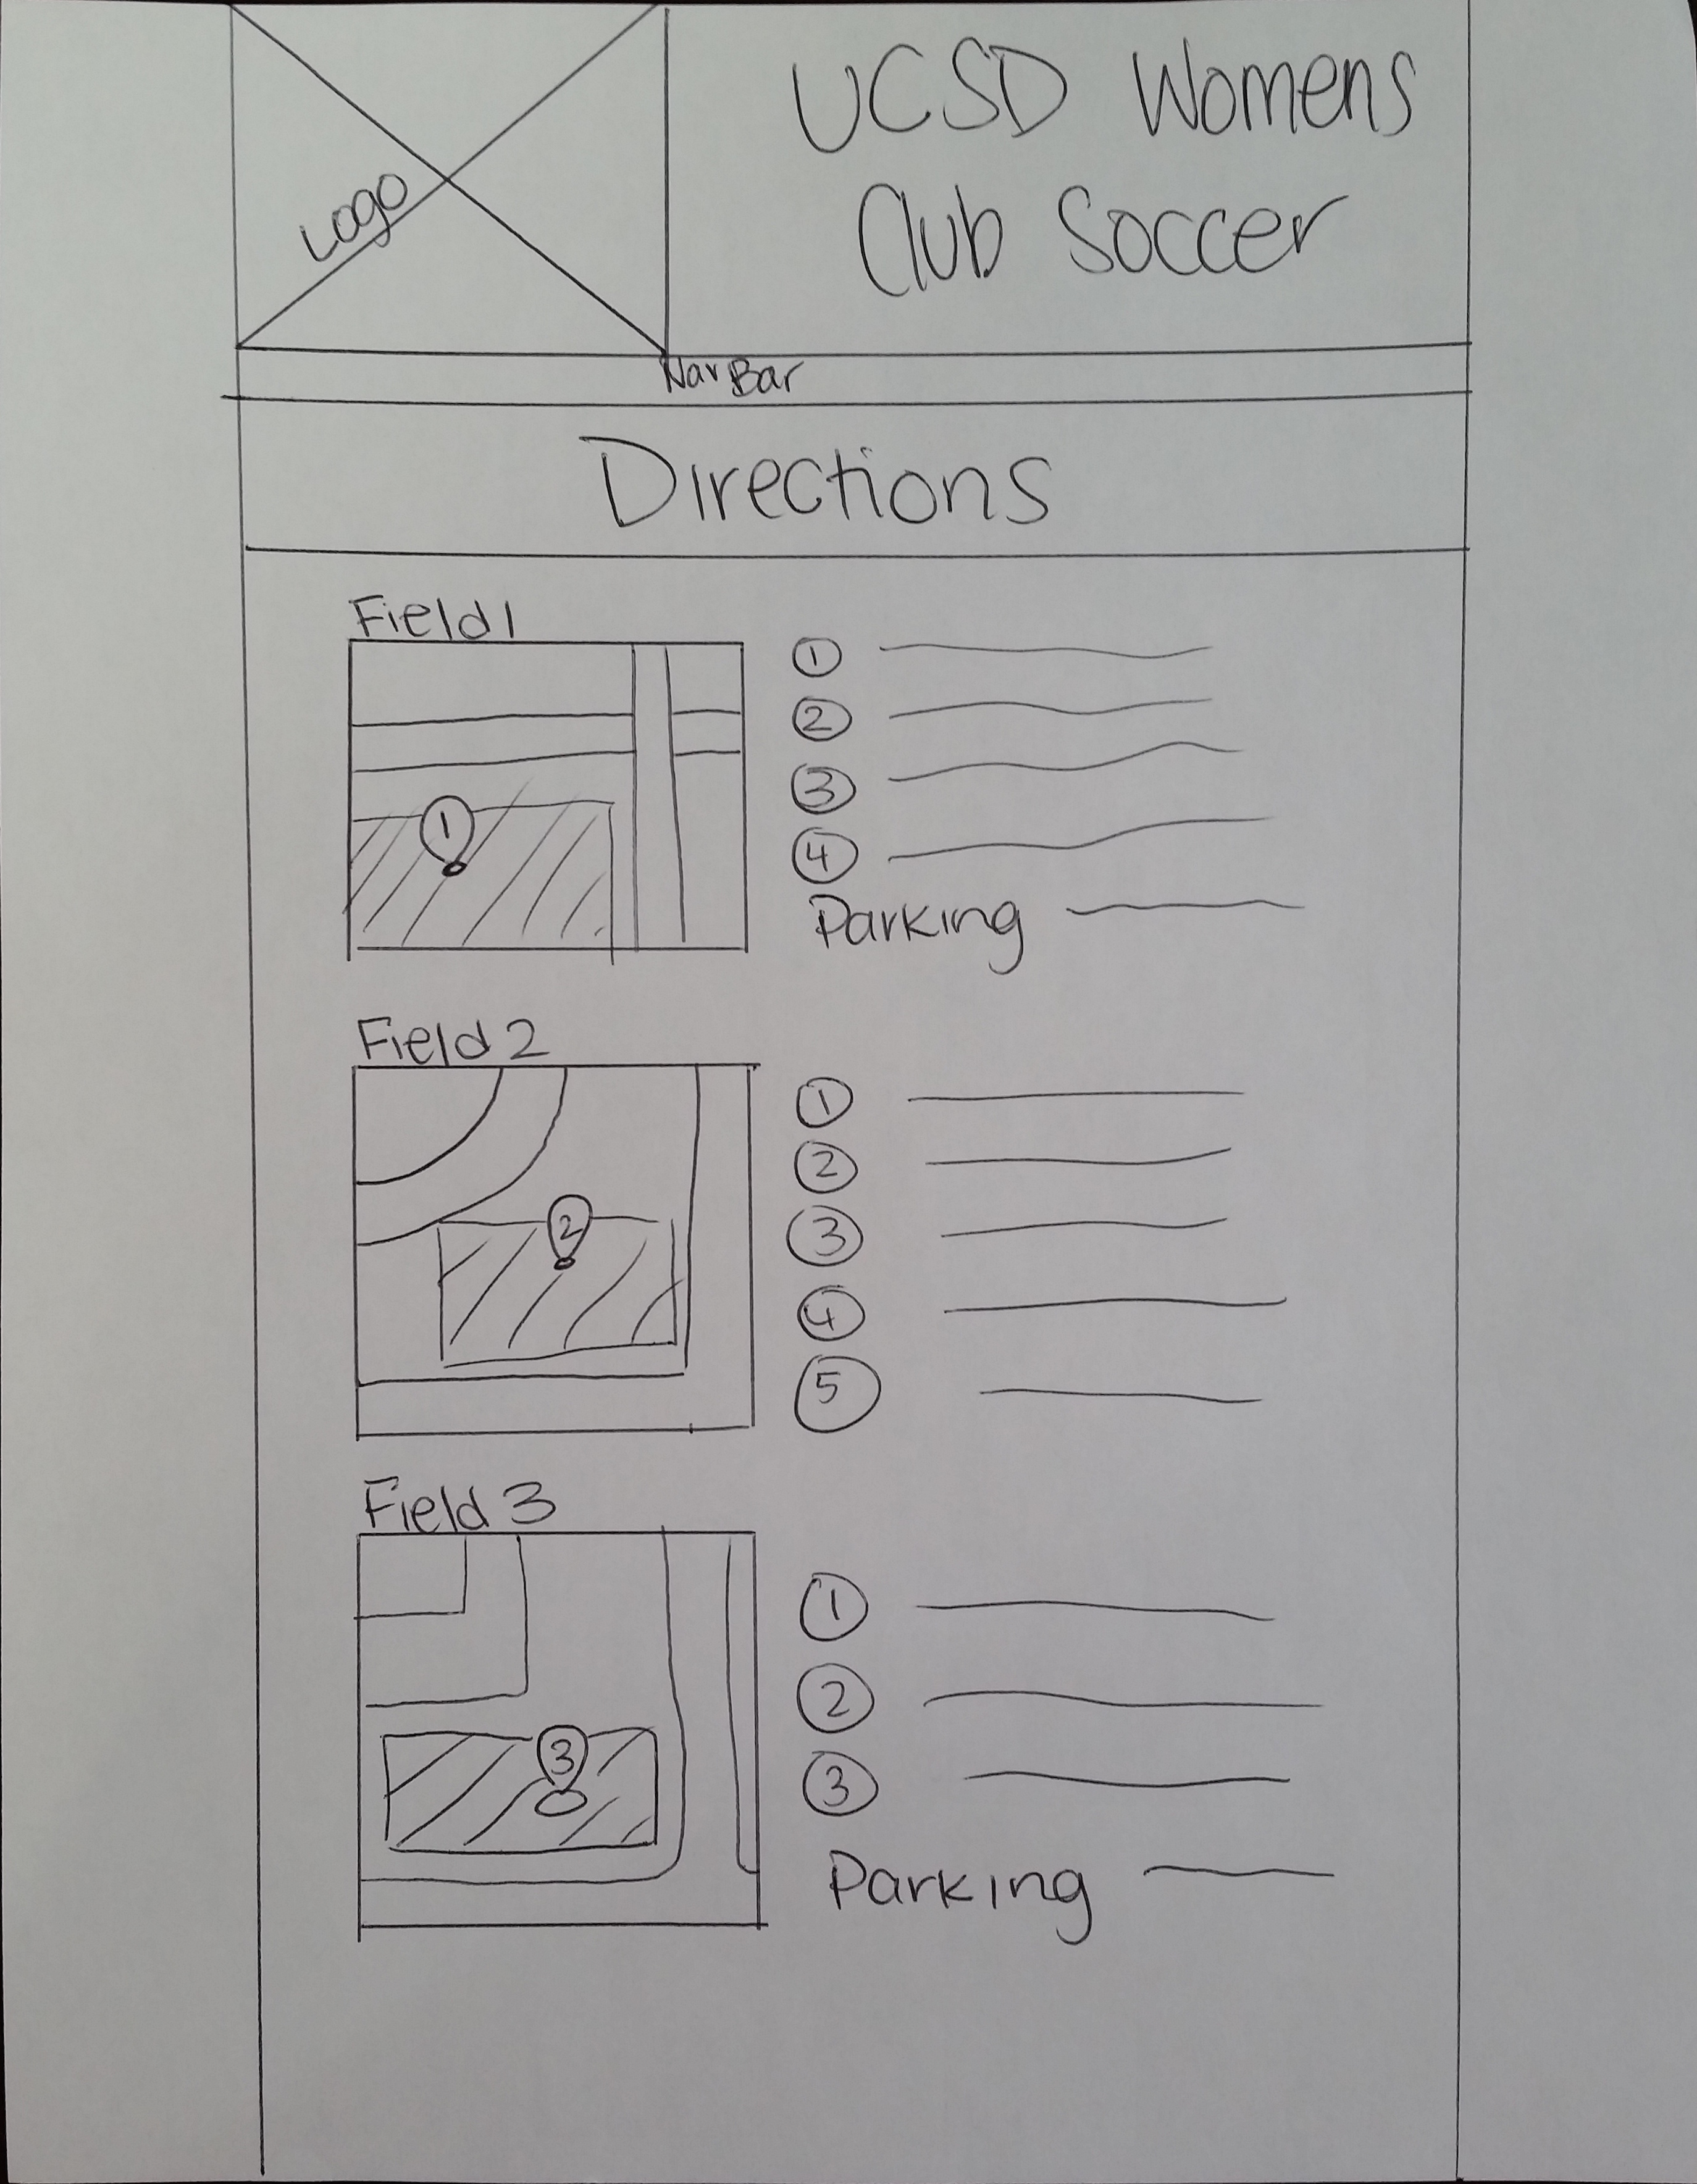 UCSD Womens
Club Soccer
Logo
NavBar
Directions
Field 1
1
1
2
3
4
Parking
Field 2
2
1
2
3
4
5
Field 3
3
1
2
3
Parking